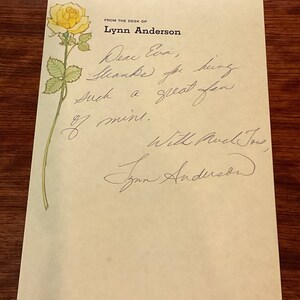 FROM THE DESK OF
Lynn Anderson
Dear Eva,
Thanks for being
such a great fan
of mine.
With Much Love,
Lynn Anderson